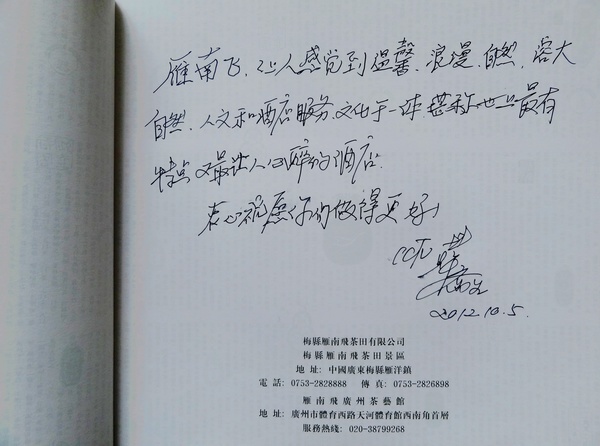 雁南飞,让人感觉到温馨、浪漫、自然,容大
自然、人文和酒店服务、文化于一体,堪称世上最有
特点又最让人心醉的酒店。
衷心祝愿你们做得更好!
CCTV
2012.10.5.
梅縣雁南飛茶田有限公司
梅縣雁南飛茶田景區
地 址:中國廣東梅縣雁洋鎮
電 話:0753-2828888 傳 真:0753-2826898
雁南飛廣州茶藝館
地 址:廣州市體育西路天河體育館西南角首層
服務熱綫:020-38799268